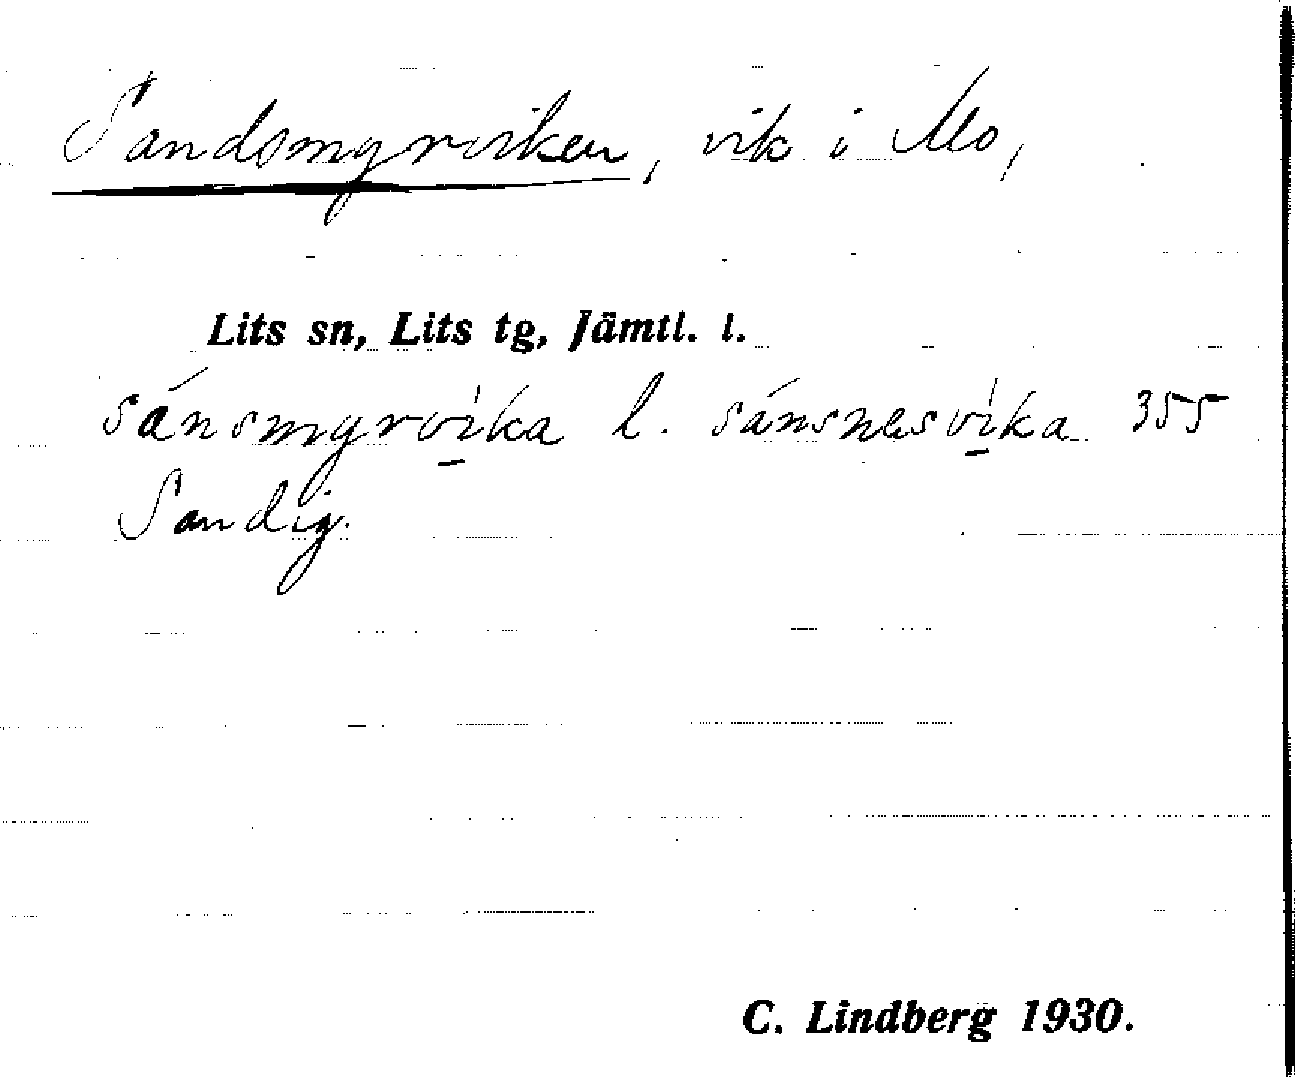 Sandsmyrviken, vik i Mo,
Lits sn, Lits tg, Jämtl. l.
sánsmyrvi̱ka l. sánsnesvi̱ka 355
Sandig.
C. Lindberg 1930.